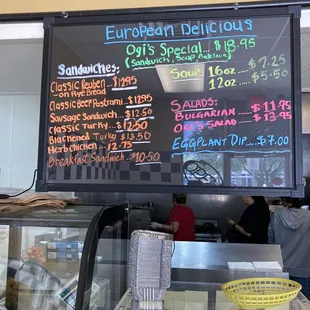 European Delicious
Ogi's Special... $18.95
(Sandwich, Soup
Sandwiches:
Classic Reuben $12.95
on Rye Bread
Classic Beef Pastrami $12.95
Sausage Sandwich.... $12.50
Classic Turkey.... $12.50
Blackened Turkey $13.50
Herb Chicken - 12.75
Breakfast Sandwich ... $10.50
Soup: 16oz ... $7.25
12oz .... $5.50
Salads:
Bulgarian ..... $11.95
Ogi's Salad ..... $13.95
Eggplant Dip ... $7.00